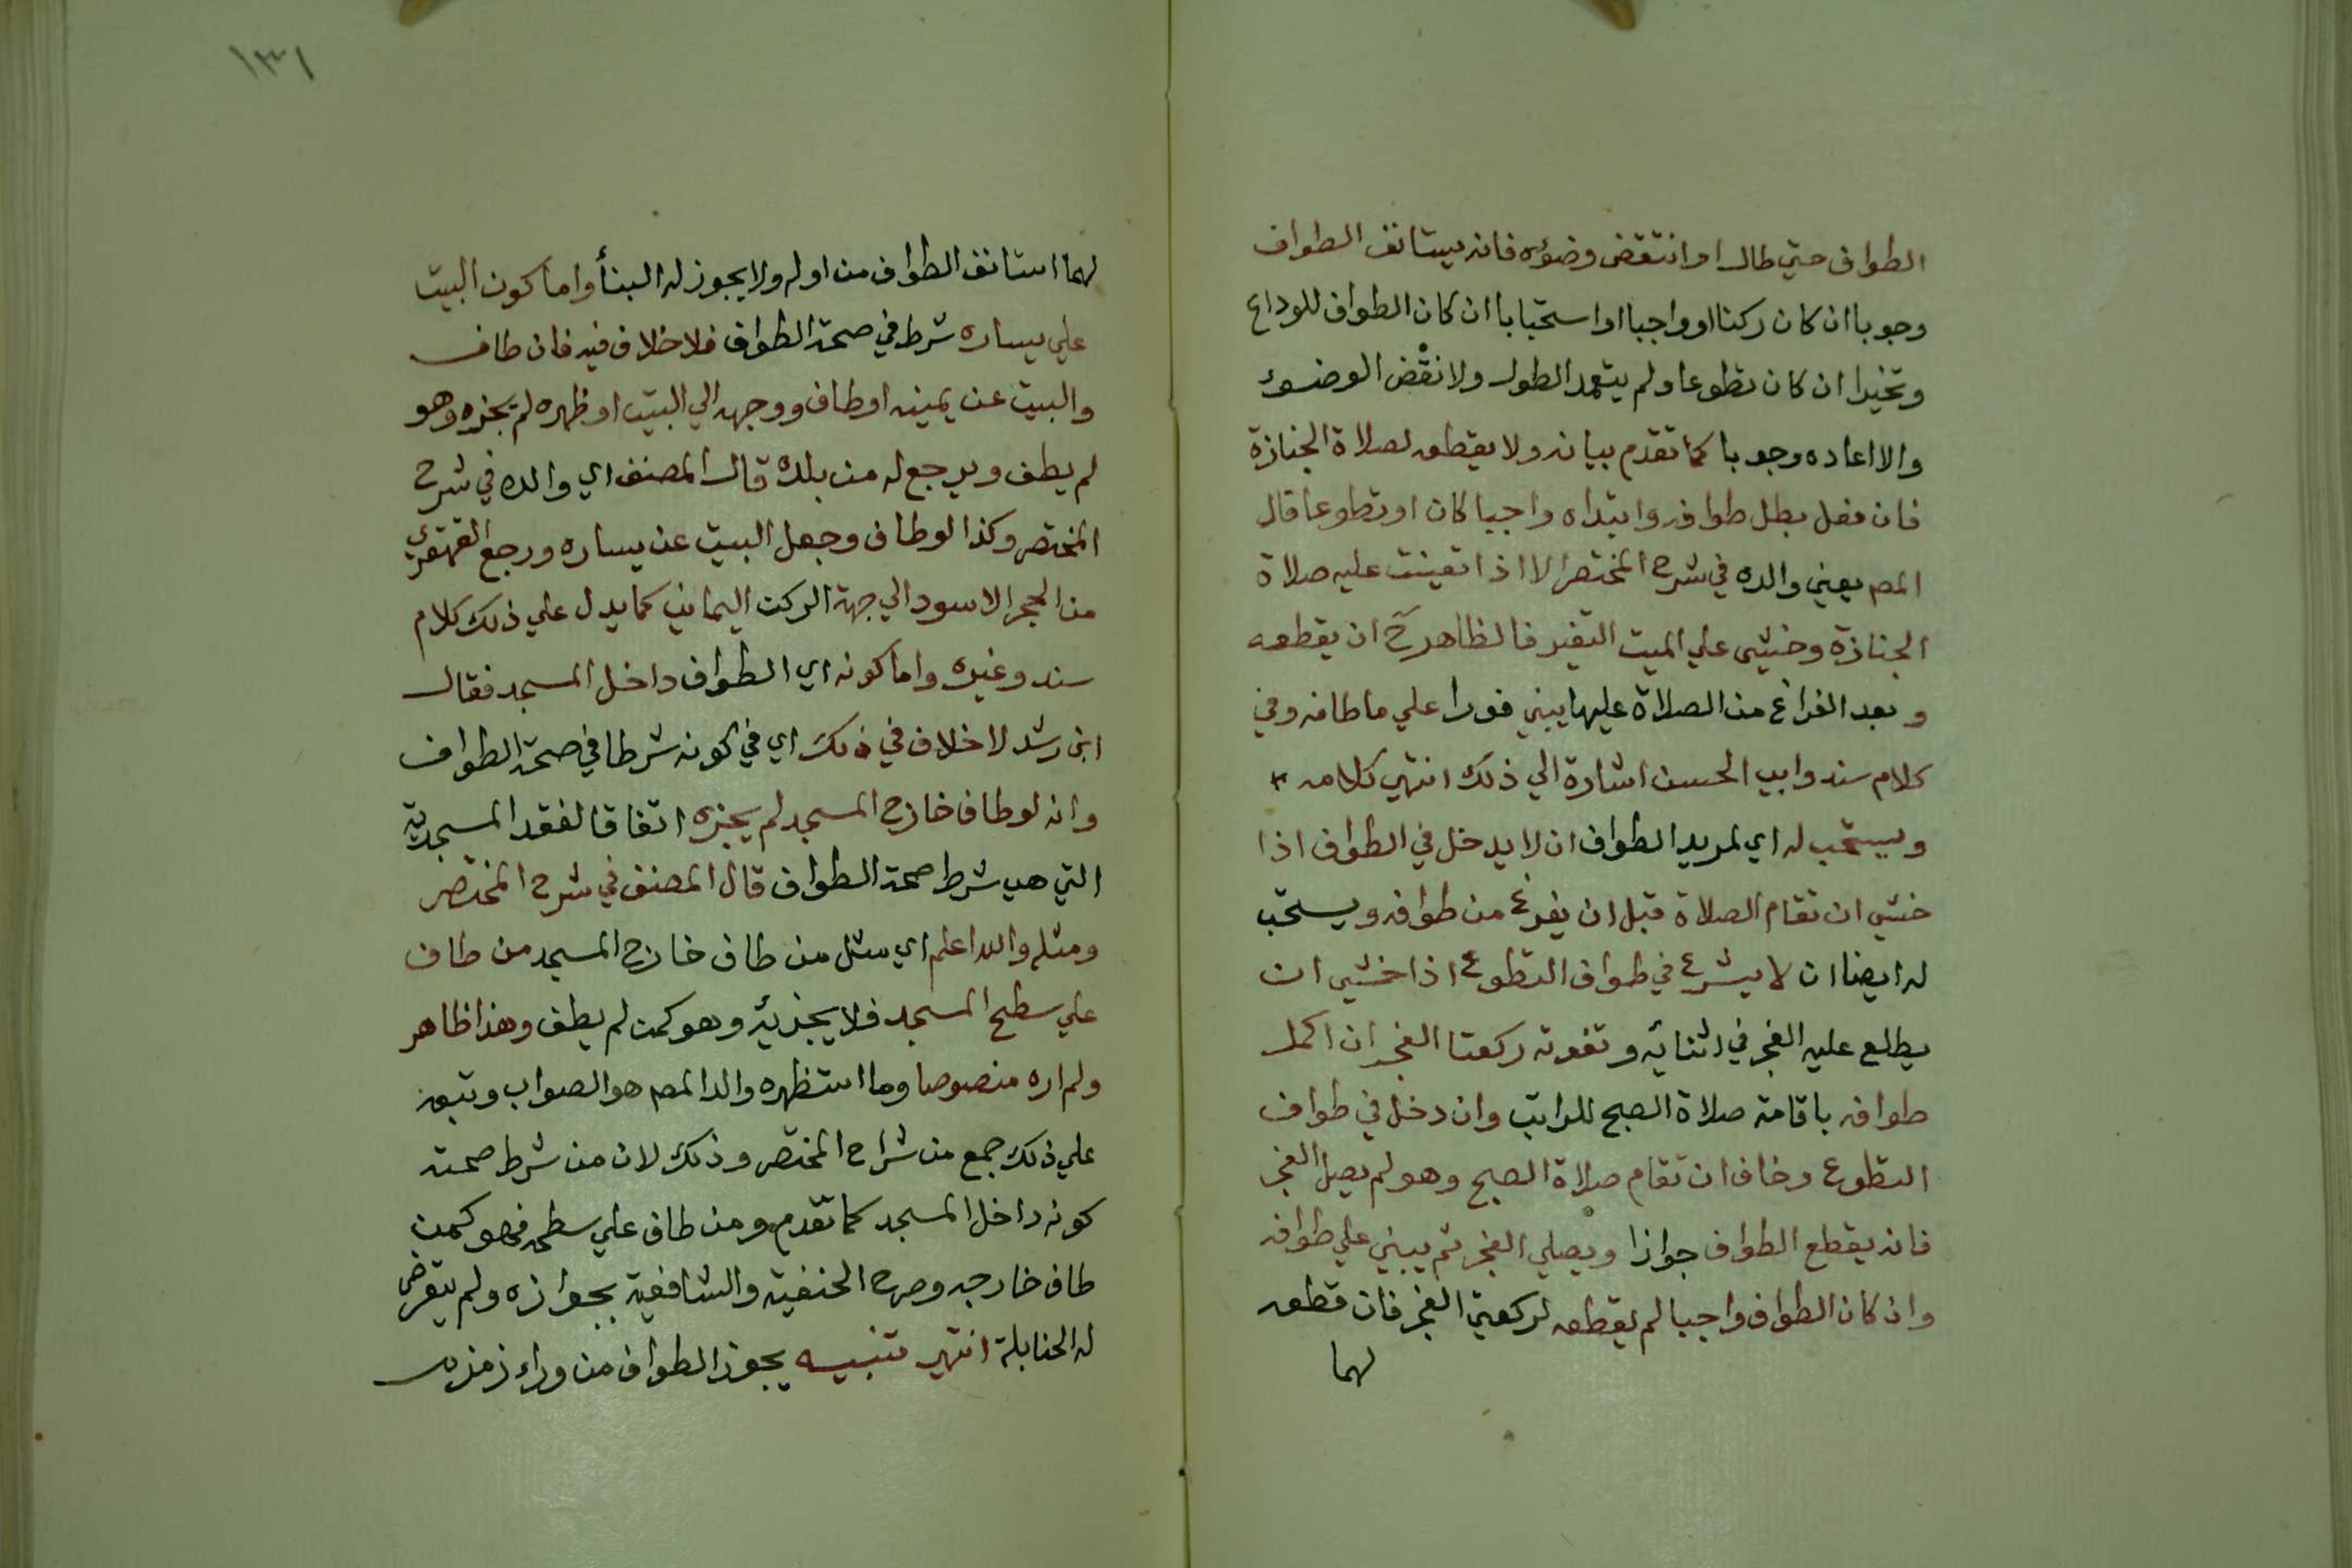 الطواف حتي طال او انتقض وضوءه فانه يستانف الطواف
وجوبا ان كان ركنا او واجبا او استحبابا ان كان الطواف للوداع
وتخييرا ان كان تطوعا ولم يتعمد الطول ولا نقض الوضوء
والا اعاده وجوبا كما تقدم بيانه ولا يقطعه لصلاة الجنازة
فان فعل بطل طوافه وابتداه واجبا كان او تطوعا قال
المصم يعني والده في شرح المختصر الا اذا تعينت عليه صلاة
الجنازة وخشي علي الميت التغير فالظاهر ح ان يقطعه
وبعد الفراغ من الصلاة عليها يبني فورا علي ما طافه وفي
كلام سند وابي الحسن اشارة الي ذلك انتهي كلامه
ويستحب له اي لمريد الطواف ان لا يدخل في الطواف اذا
خشي ان تقام الصلاة قبل ان يفرغ من طوافه ويستحب
له ايضا ان لا يشرع في طواف التطوع اذا خشي ان
يطلع عليه الفجر في اثنائه وتفوته ركعتا الفجر ان اكمل
طوافه باقامة صلاة الصبح للراتب وان دخل في طواف
التطوع وخاف ان تقام صلاة الصبح وهو لم يصل الفجر
فانه يقطع الطواف جوازا ويصلي الفجر ثم يبني علي طوافه
وان كان الطواف واجبا لم يقطعه لركعتي الفجر فان قطعه
لهما
١٣١
لهما استانف الطواف من اوله ولا يجوز له البنأ واما كون البيت
علي يساره شرط في صحة الطواف فلا خلاف فيه فان طاف
والبيت عن يمينه او طاف ووجهه الي البيت او ظهره لم يجزه وهو
لم يطف ويرجع له من بلده قال المصنف اي والده في شرح
المختصر وكذا لو طاف وجعل البيت عن يساره ورجع القهقري
من الحجر الاسود الي جهة الركن اليماني كما يدل علي ذلك كلام
سند وغيره واما كونه اي الطواف داخل المسجد فقال
ابن رشد لا خلاف في ذلك اي في كونه شرطا في صحة الطواف
وانه لو طاف خارج المسجد لم يجزه اتفاقا لفقد المسجدية
التي هي شرط صحة الطواف قال المصنف في شرح المختصر
ومثله والله اعلم اي مثل من طاف خارج المسجد من طاف
علي سطح المسجد فلا يجزئه وهو كمن لم يطف وهذا ظاهر
ولم اره منصوصا وما استظهره والد المصم هو الصواب وتبعه
علي ذلك جمع من شراح المختصر وذلك لان من شرط صحته
كونه داخل المسجد كما تقدم ومن طاف علي سطحه فهو كمن
طاف خارجه وصرح الحنفية والشافعية بجوازه ولم يتعرض
له الحنابلة انتهي تنبيه يجوز الطواف من وراء زمزم